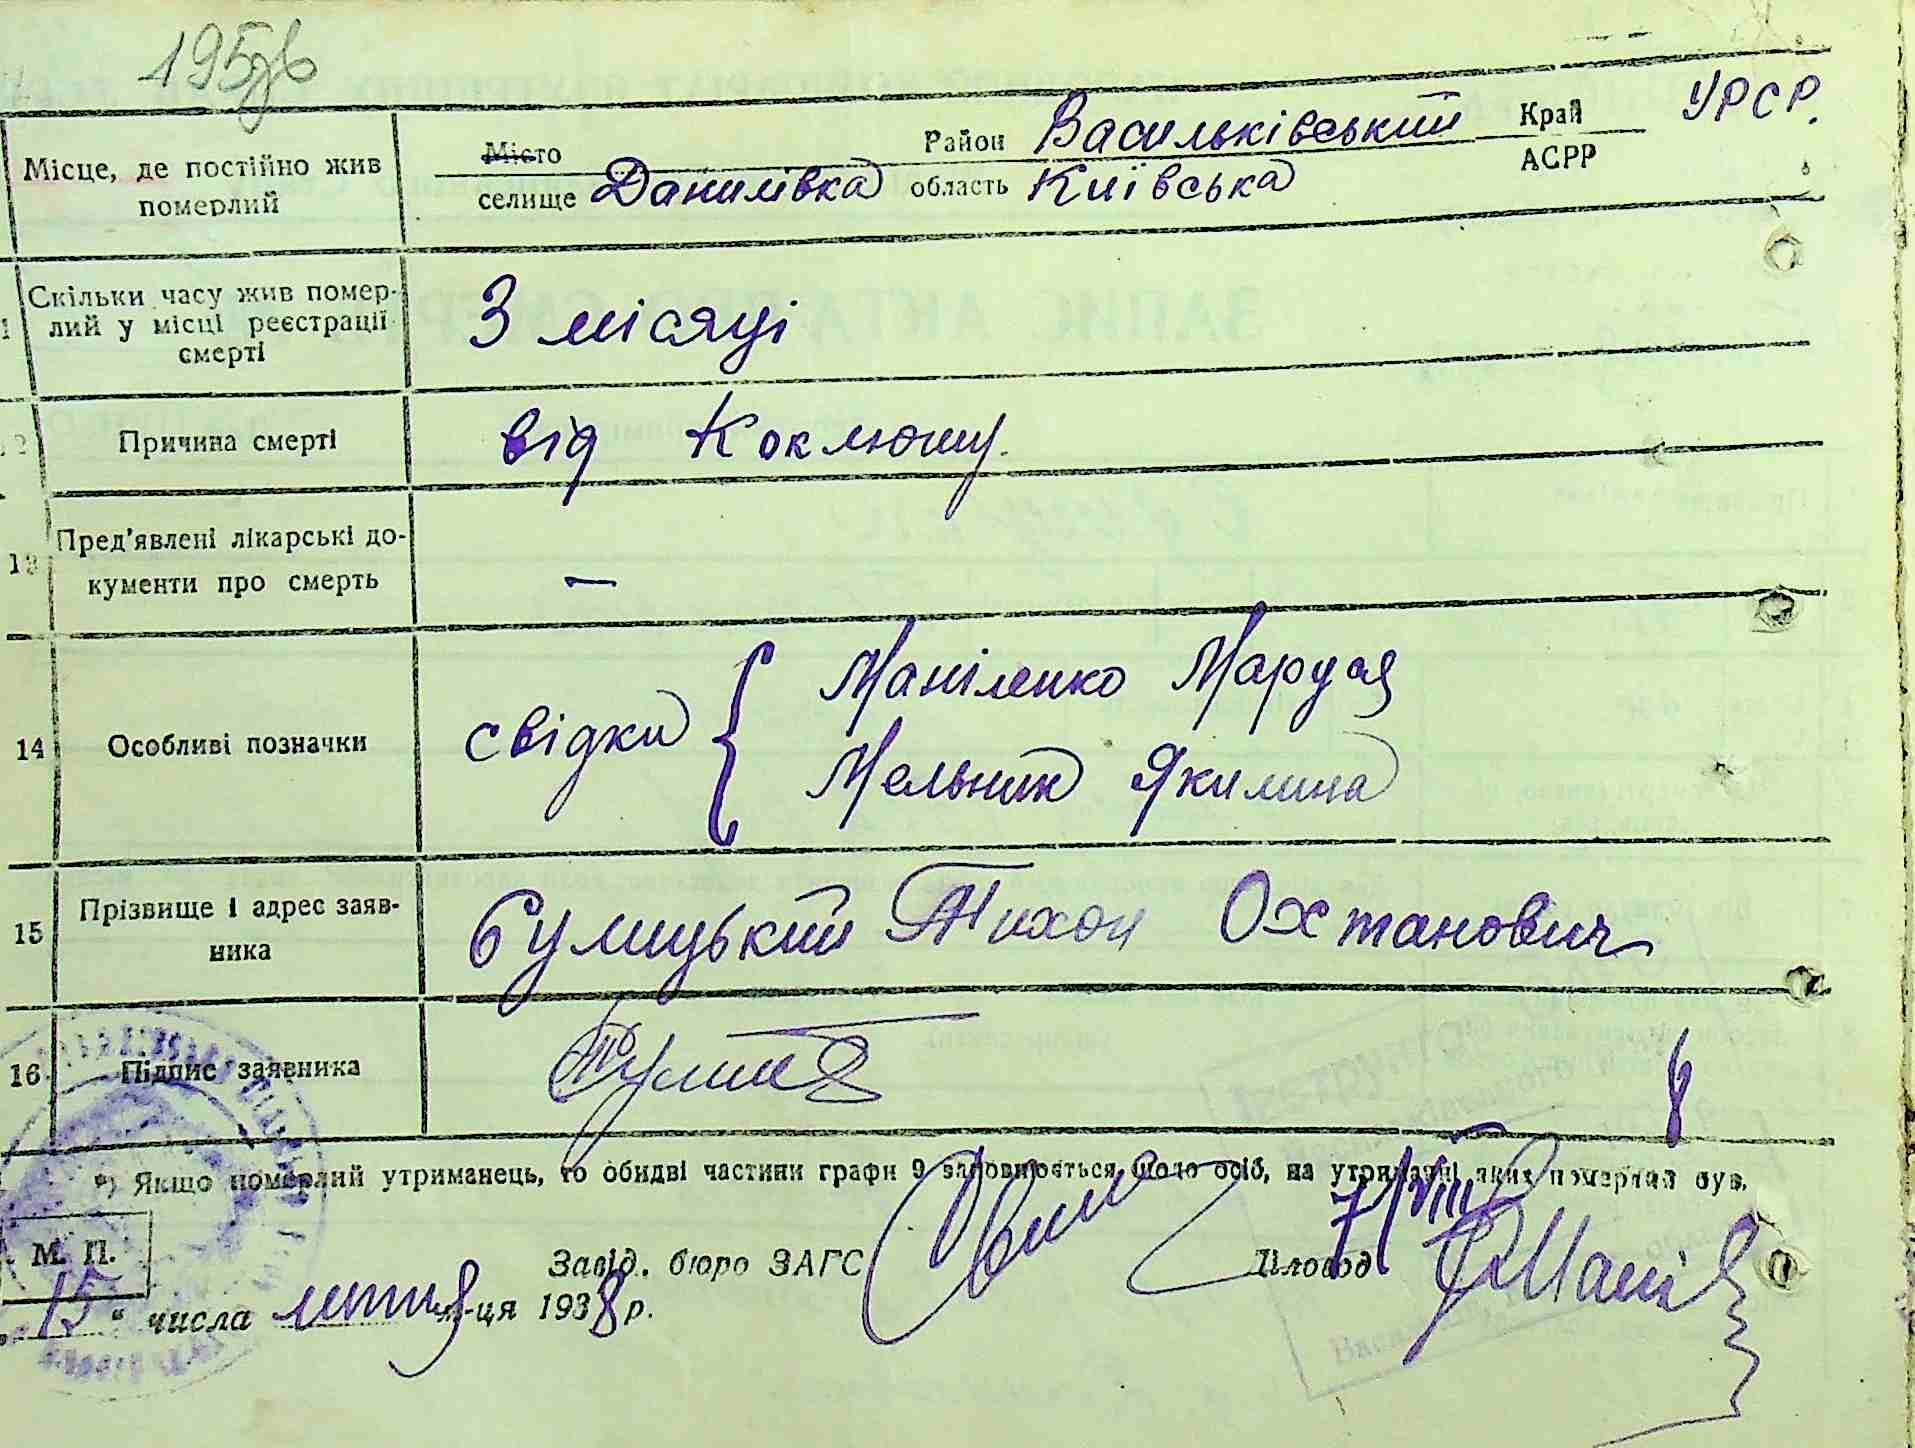 195зв
Місце, де постійно жив
померлий
Місто
селище Данилівка
Район Васильківський
область Київська
Край
АСРР
УРСР.
Скільки часу жив помер-
лий у місці реєстрації
смерті
3 місяці
Причина смерті
від Коклюшу.
13 Пред'явлені лікарські до-
кументи про смерть
—
14 Особливі позначки
свідки { Маніленко Маруся
Мельник Якилина
15 Прізвище і адрес заяв-
ника
Сулицький Тихон Охтанович
16 Підпис заявника
*) Якщо померлий утриманець, то обидві частини графи 9 заповнюється щодо осіб, на утриманні яких померлий був.
М. П.
Завід. бюро ЗАГС
Діловод
7/VIII
„15“ числа лютня м-ця 1938 р.